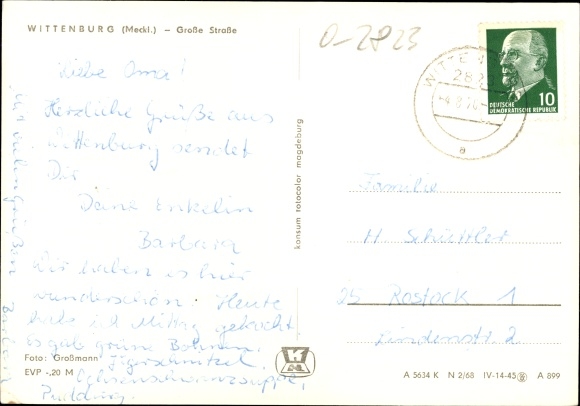 WITTENBURG (Meckl.) – Große Straße
O-2823
Liebe Oma!
Herzliche Grüße aus
Wittenburg sendet
Dir
Deine Enkelin
Barbara
Wir haben es hier
wunderschön. Heute
habe ich Mittag gekocht.
Es gab grüne Bohnen,
Jägerschnitzel,
Ochsenschwanzsuppe,
Pudding.
Foto: Großmann
EVP -,20 M
konsum rotocolor magdeburg
DEUTSCHE
DEMOKRATISCHE REPUBLIK
10
a
Familie
H. Schüttler
25 Rostock 1
Lindenstr. 2
A 5634 K N 2/68 IV-14-45 A 899